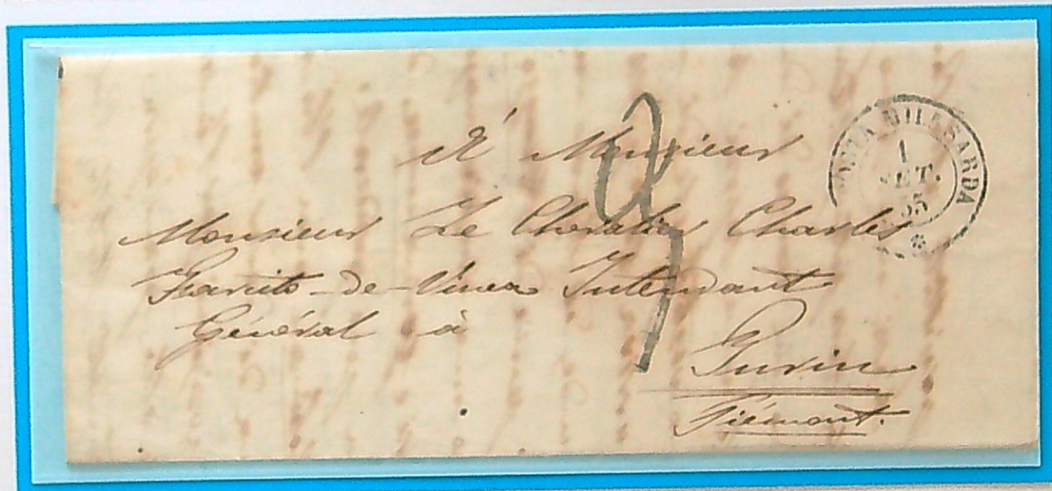 À Monsieur
Monsieur Le Chevalier Charles
de Intendant
Général à
Turin
Piémont.
POSTA MIL.E SARDA
1
SET.
55
*